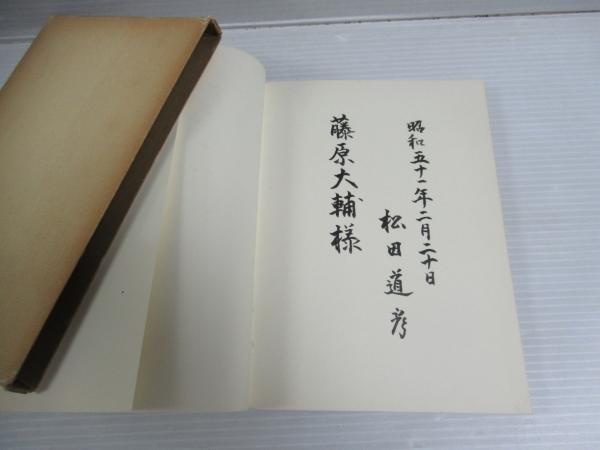 昭和五十一年二月二十日
松田道彦
藤原大輔様